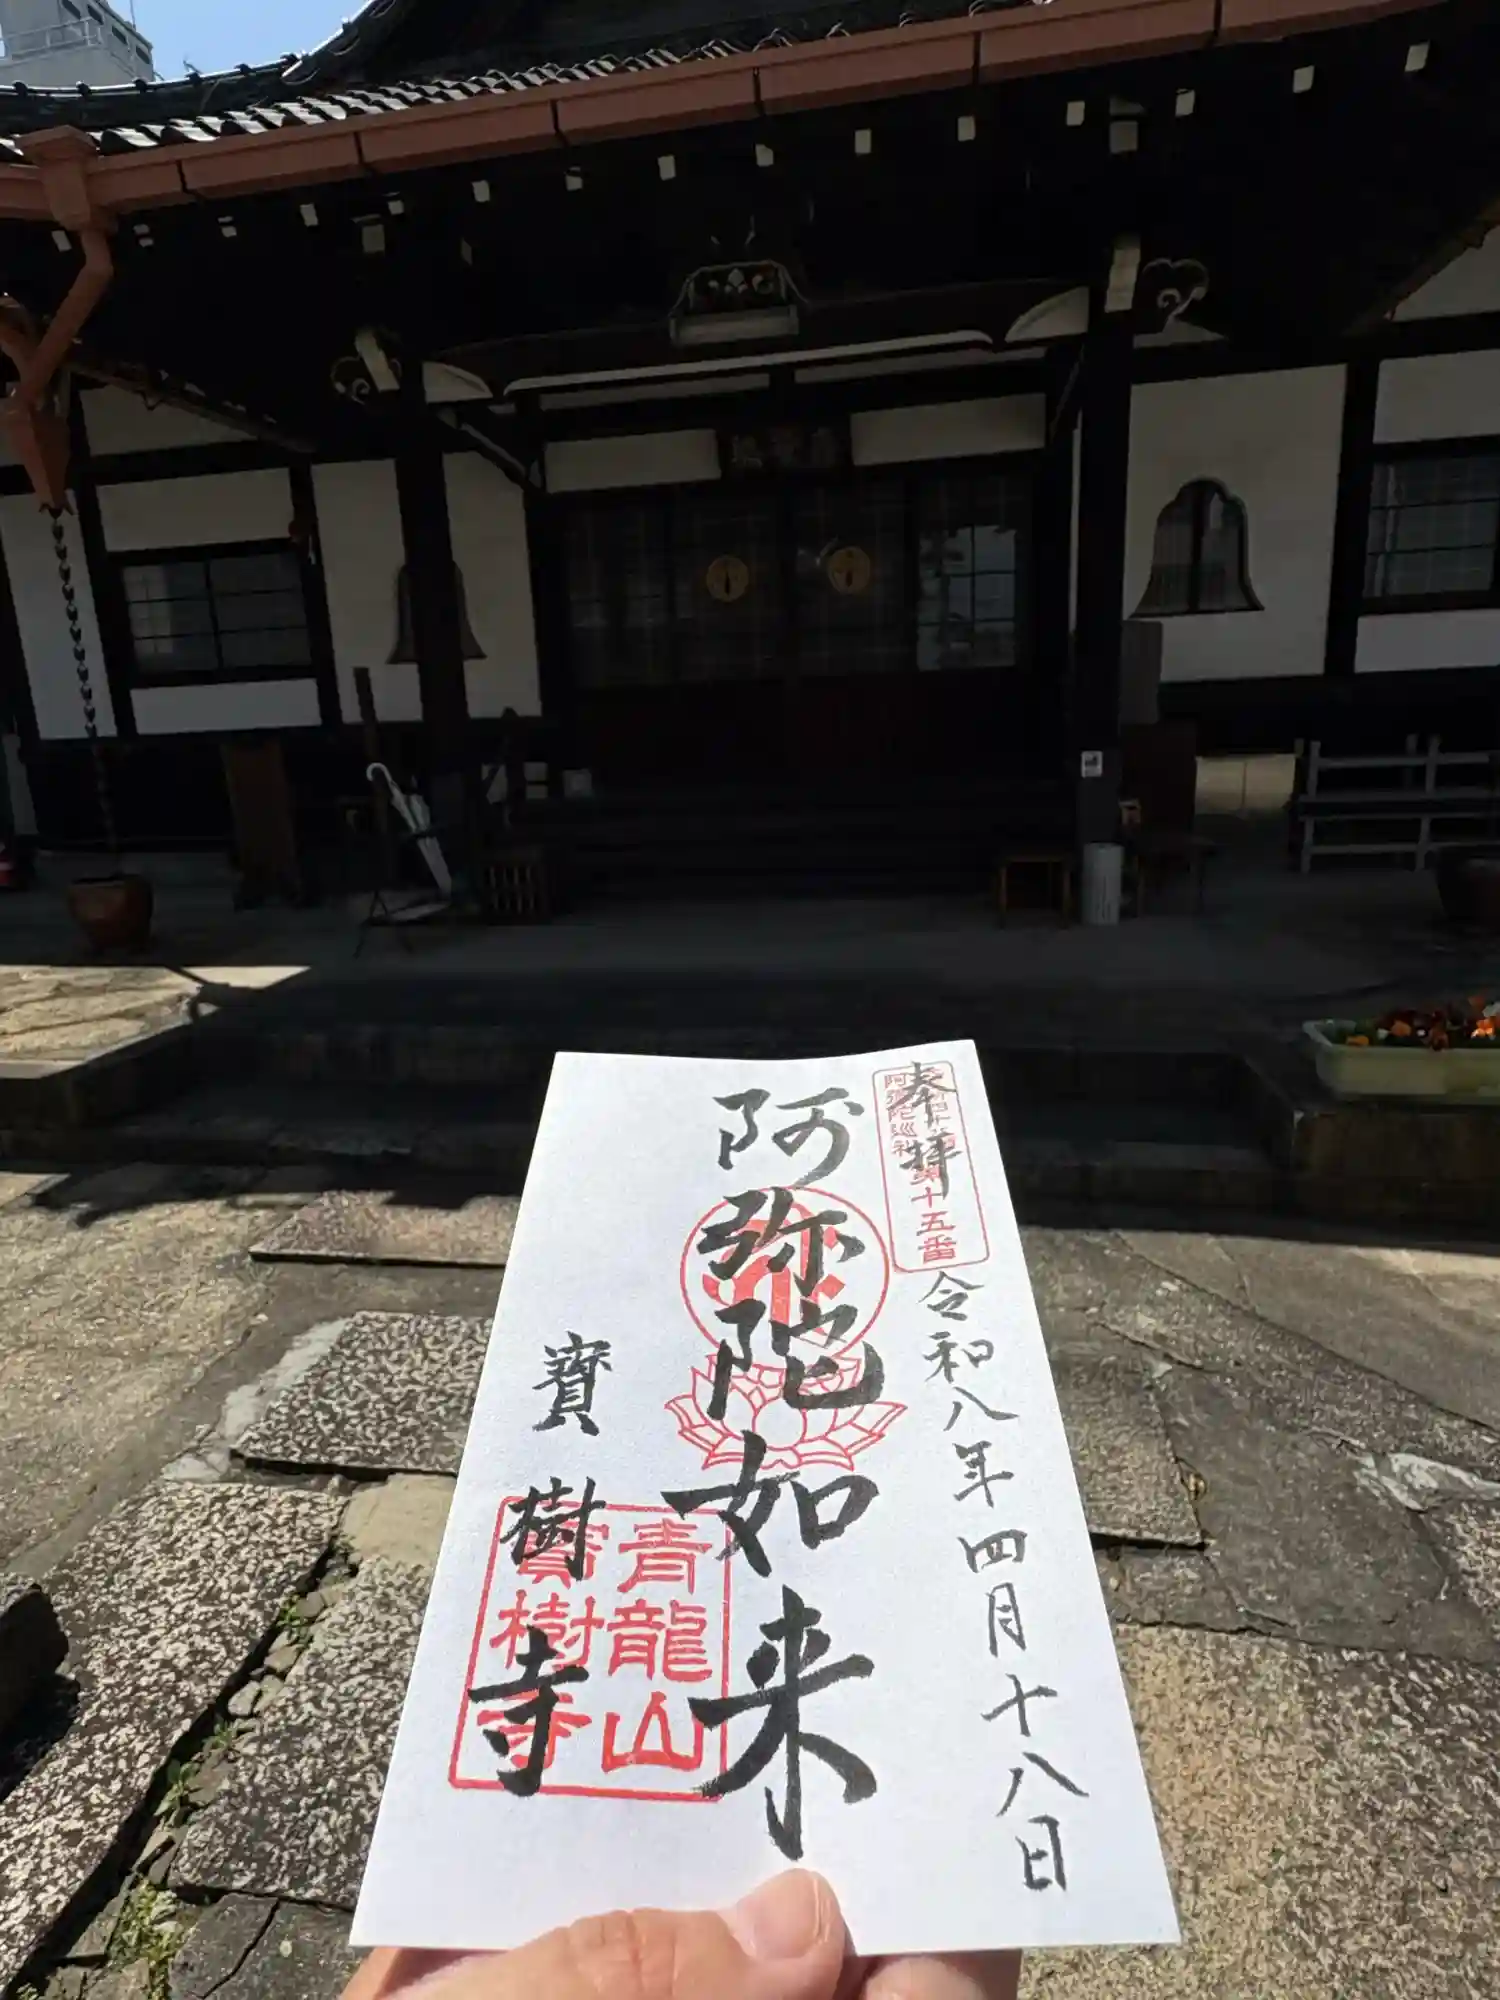 奉拝
阿弥陀巡礼第十五番
令和八年四月十八日
阿弥陀如来
寶樹寺
青龍山
寶樹寺